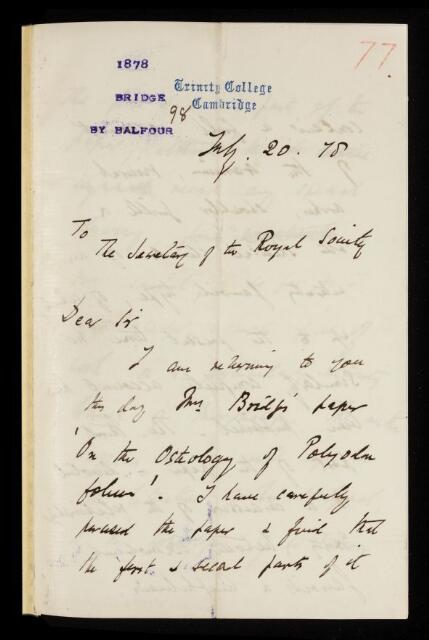 77
1878
BRIDGE
98
BY BALFOUR
Trinity College
Cambridge
July. 20. 78
To
The Secretary of the Royal Society
Dear Sir
I am returning to you
this day Mr Bridge's paper
'On the Osteology of Polyodon
folium'. I have carefully
perused the paper & find that
the first & second parts of it